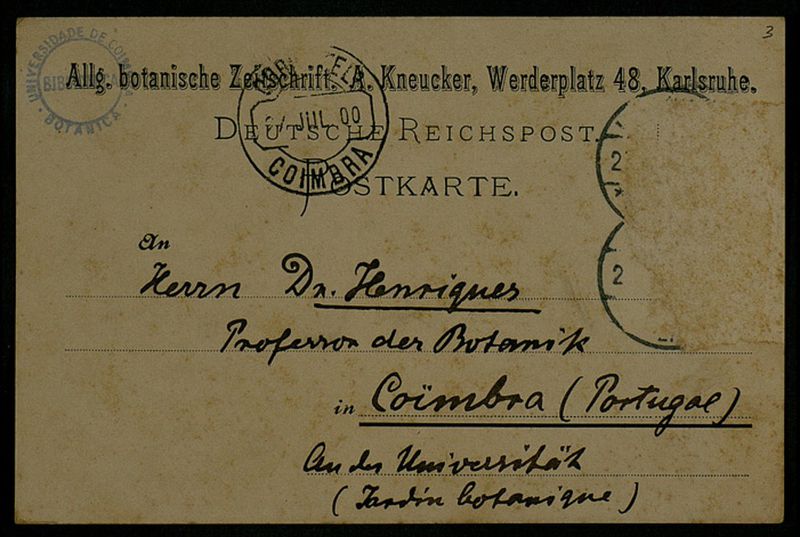 3
UNIVERSIDADE DE COIMBRA
BOTANICA
Allg. botanische Zeitschrift. A. Kneucker, Werderplatz 48, Karlsruhe.
JUL 00
COIMBRA
DEUTSCHE REICHSPOST.
POSTKARTE.
2
2
An
Herrn Dr. Henriques
Professor der Botanik
in Coïmbra (Portugal)
An der Universität
(Jardin botanique)